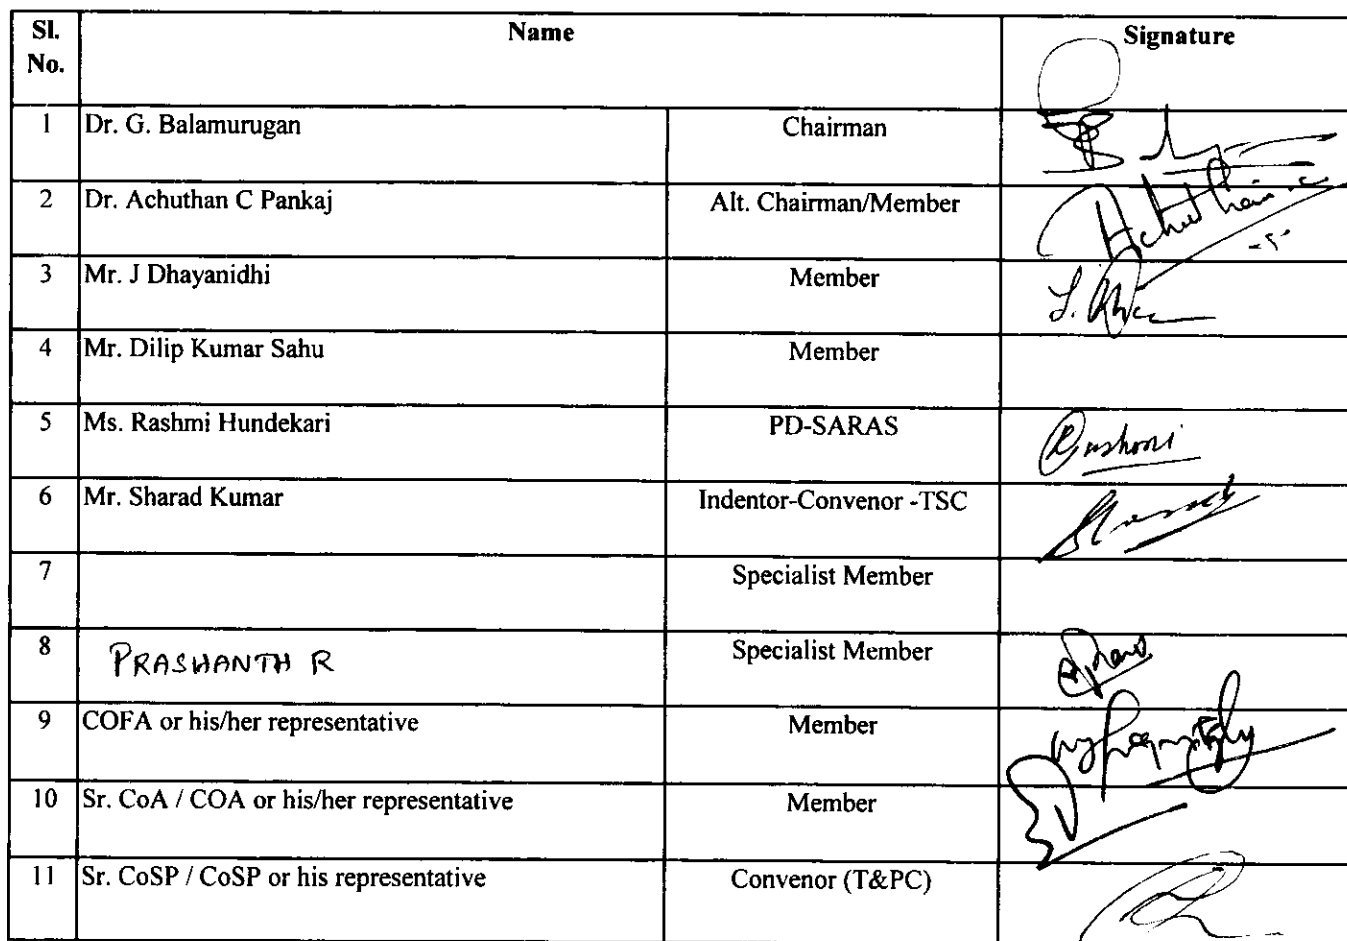 Sl. No. Name Signature
1 Dr. G. Balamurugan Chairman
2 Dr. Achuthan C Pankaj Alt. Chairman/Member Achuthan.c
3 Mr. J Dhayanidhi Member
4 Mr. Dilip Kumar Sahu Member
5 Ms. Rashmi Hundekari PD-SARAS Rashmi
6 Mr. Sharad Kumar Indentor-Convenor -TSC
7 Specialist Member
8 PRASHANTH R Specialist Member
9 COFA or his/her representative Member
10 Sr. CoA / COA or his/her representative Member
11 Sr. CoSP / CoSP or his representative Convenor (T&PC)